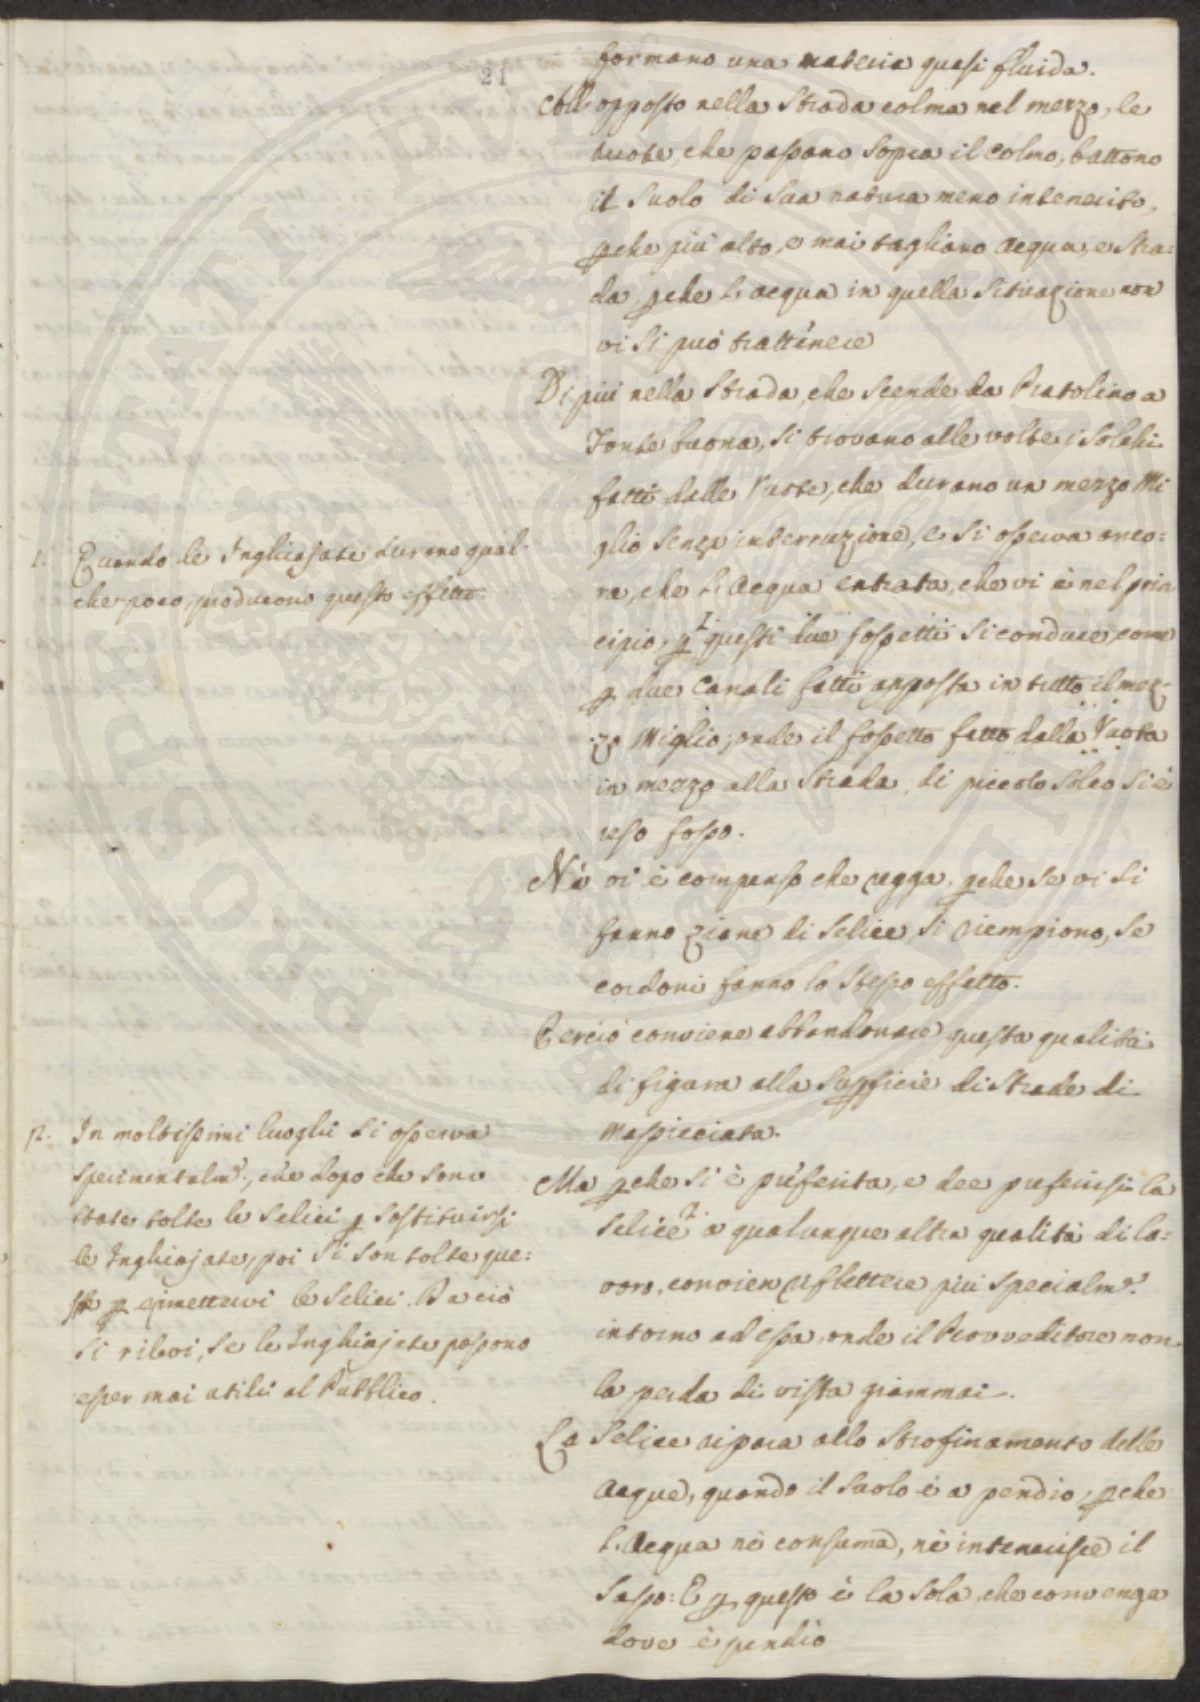 21
formano una materia quasi fluida.
All opposto nella Strada colma nel mezzo, le
ruote, che passano sopra il Colmo, battono
il Suolo di sua natura meno intenerito,
pche più alto, e mai tagliano Acqua, e Stra=
da, pche l'acqua in quella Situazione non
vi si può trattenere
Di più nella Strada, che scende da Pratolino a
Fonte buona, si trovano alle volte i Solchi
fatti dalle Ruote, che durano un mezzo Mi
glio senza interruzione, e si osserva anco=
ra, che l'Acqua entrata, che vi è nel prin
cipio, p questi due fossetti si conduce, come
p due Canali fatti apposta in tutto il mez=
zo Miglio; onde il fossetto fatto dalla Ruota
in mezzo alla Strada, di piccolo Solco si è
reso fosso.
Nè vi è compenso che regga, pche se vi si
fanno piane di Selice, si riempiono, se
cordoni fanno lo stesso effetto.
Perciò conviene abbandonare questa qualità
di figura alla Supficie di Strade di
Massicciata.
Ma pche si è preferita, e dee preferirsi la
Selice 2. a qualunque altra qualità di la=
voro, convien riflettere più specialmte
intorno ad essa, onde il Provveditore non
la perda di vista giammai.
La Selice ripara allo Strofinamento delle
Acque, quando il Suolo è a pendio, pche
l'Acqua nè consuma, nè intenerisce il
Sasso: E p questo è la sola, che convenga
dove è pendio
1. Quando le Inghiajate durano qual=
che poco, producono questo effetto.
2. In moltissimi luoghi si osserva
sperimentalmte, che dopo che sono
state tolte le Selici p sostituirsi
le Inghiajate, poi si son tolte que=
ste p rimettervi le Selici. Da ciò
si rilevi, se le Inghiajate possono
esser mai utili al Pubblico.